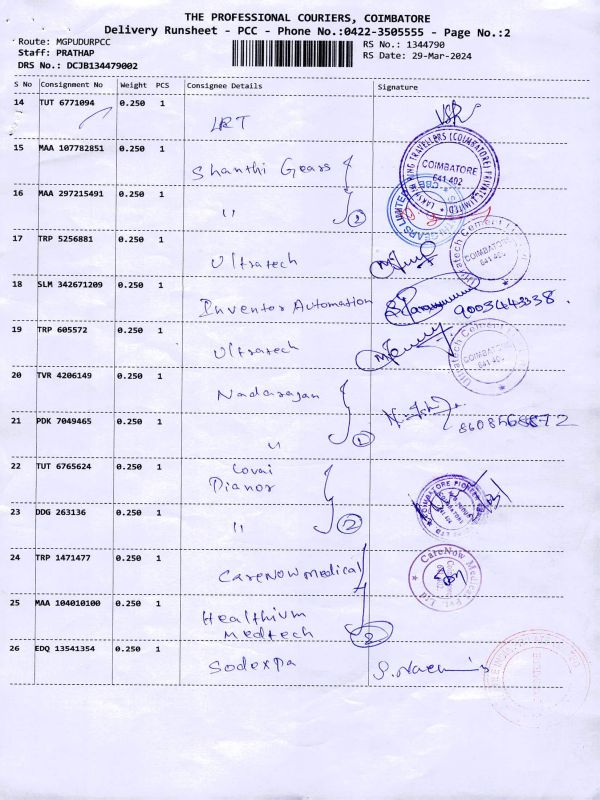 THE PROFESSIONAL COURIERS, COIMBATORE
Delivery Runsheet - PCC - Phone No.:0422-3505555 - Page No.:2
Route: MGPUDURPCC
Staff: PRATHAP
DRS No.: DCJB134479002
RS No.: 1344790
RS Date: 29-Mar-2024
S No Consignment No Weight PCS Consignee Details Signature
14 TUT 6771094 0.250 1 LRT
15 MAA 107782851 0.250 1 Shanthi Gears
COIMBATORE
641 402
16 MAA 297215491 0.250 1 "
2
17 TRP 5256881 0.250 1 Ultratech
COIMBATORE
18 SLM 342671209 0.250 1 Inventor Automation
19 TRP 605572 0.250 1 Ultratech
COIMBATORE
20 TVR 4206149 0.250 1 Nadarajan
21 PDK 7049465 0.250 1 "
22 TUT 6765624 0.250 1 Covai
Pianor
23 DDG 263136 0.250 1 "
2
24 TRP 1471477 0.250 1 CareNow medical
CareNow Medical Pvt. Ltd
25 MAA 104010100 0.250 1 Healthium
medtech
2
26 EDQ 13541354 0.250 1 Sodexpa